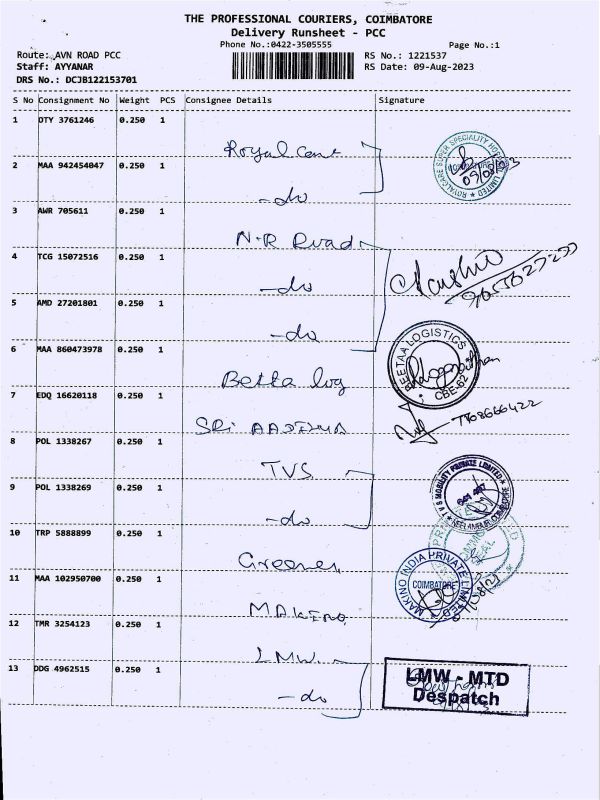 THE PROFESSIONAL COURIERS, COIMBATORE
Delivery Runsheet - PCC
Phone No.:0422-3505555 Page No.:1
Route: AVN ROAD PCC RS No.: 1221537
Staff: AYYANAR RS Date: 09-Aug-2023
DRS No.: DCJB122153701
S No Consignment No Weight PCS Consignee Details Signature
1 DTY 3761246 0.250 1
Royal Care
ROYALCARE SUPER SPECIALITY LIMITED
09/08/23
2 MAA 942454047 0.250 1
-do
3 AWR 705611 0.250 1
N.R Road
4 TCG 15072516 0.250 1
-do
5 AMD 27201801 0.250 1
-do
6 MAA 860473978 0.250 1
Betta log
BEETAA LOGISTICS
CBE-62
7 EDQ 16620118 0.250 1
SRi
8 POL 1338267 0.250 1
TVS
9 POL 1338269 0.250 1
-do
MOBILITY PRIVATE LIMITED
10 TRP 5888899 0.250 1
11 MAA 102950700 0.250 1
MAKINO
MAKINO INDIA PRIVATE LIMITED
COIMBATORE
12 TMR 3254123 0.250 1
LMW.
13 DDG 4962515 0.250 1
-do
LMW - MTD
Despatch